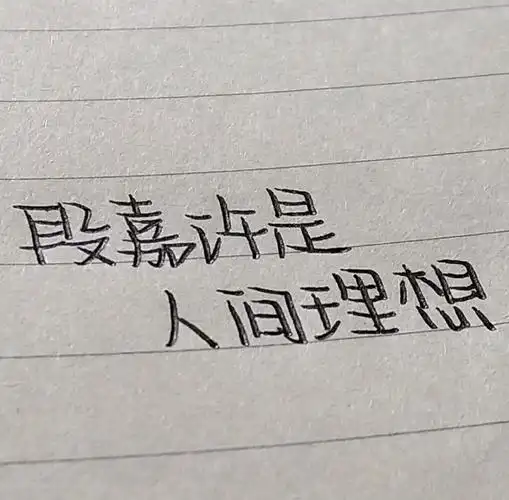 段嘉许是
人间理想